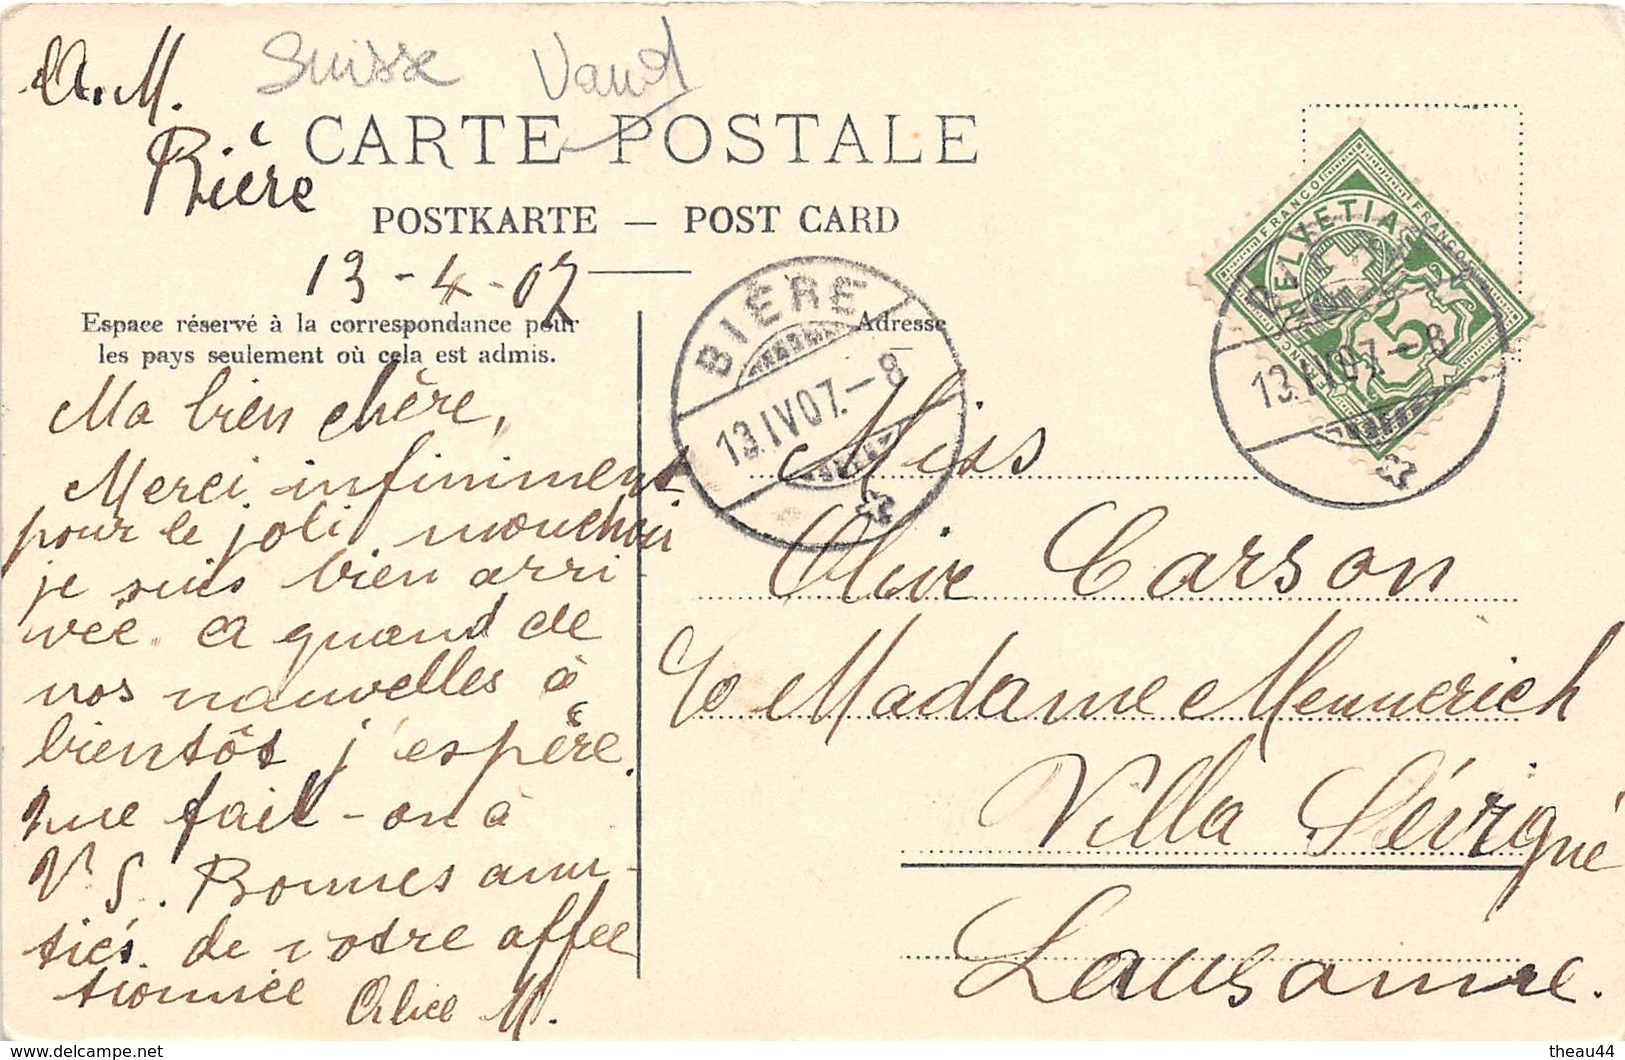 A. M.
Suisse Vaud
Bière
CARTE POSTALE
POSTKARTE — POST CARD
13-4-07
Espace réservé à la correspondance pour
les pays seulement où cela est admis.
Ma bien chère,
Merci infiniment
pour le joli mouchoir
je suis bien arri-
vée. A quand de
vos nouvelles à
bientôt j'espère.
que fait-on à
V S. Bonnes ami-
tiés. de votre affec
tionnée Alice M.
BIÈRE
13.IV.07.–8
Adresse
FRANCO
FRANCO
HELVETIA
5
13.IV.07.–8
Miss
Olive Carson
c/o Madame Mennerich
Villa Sévigné
Lausanne.
www.delcampe.net
theau44